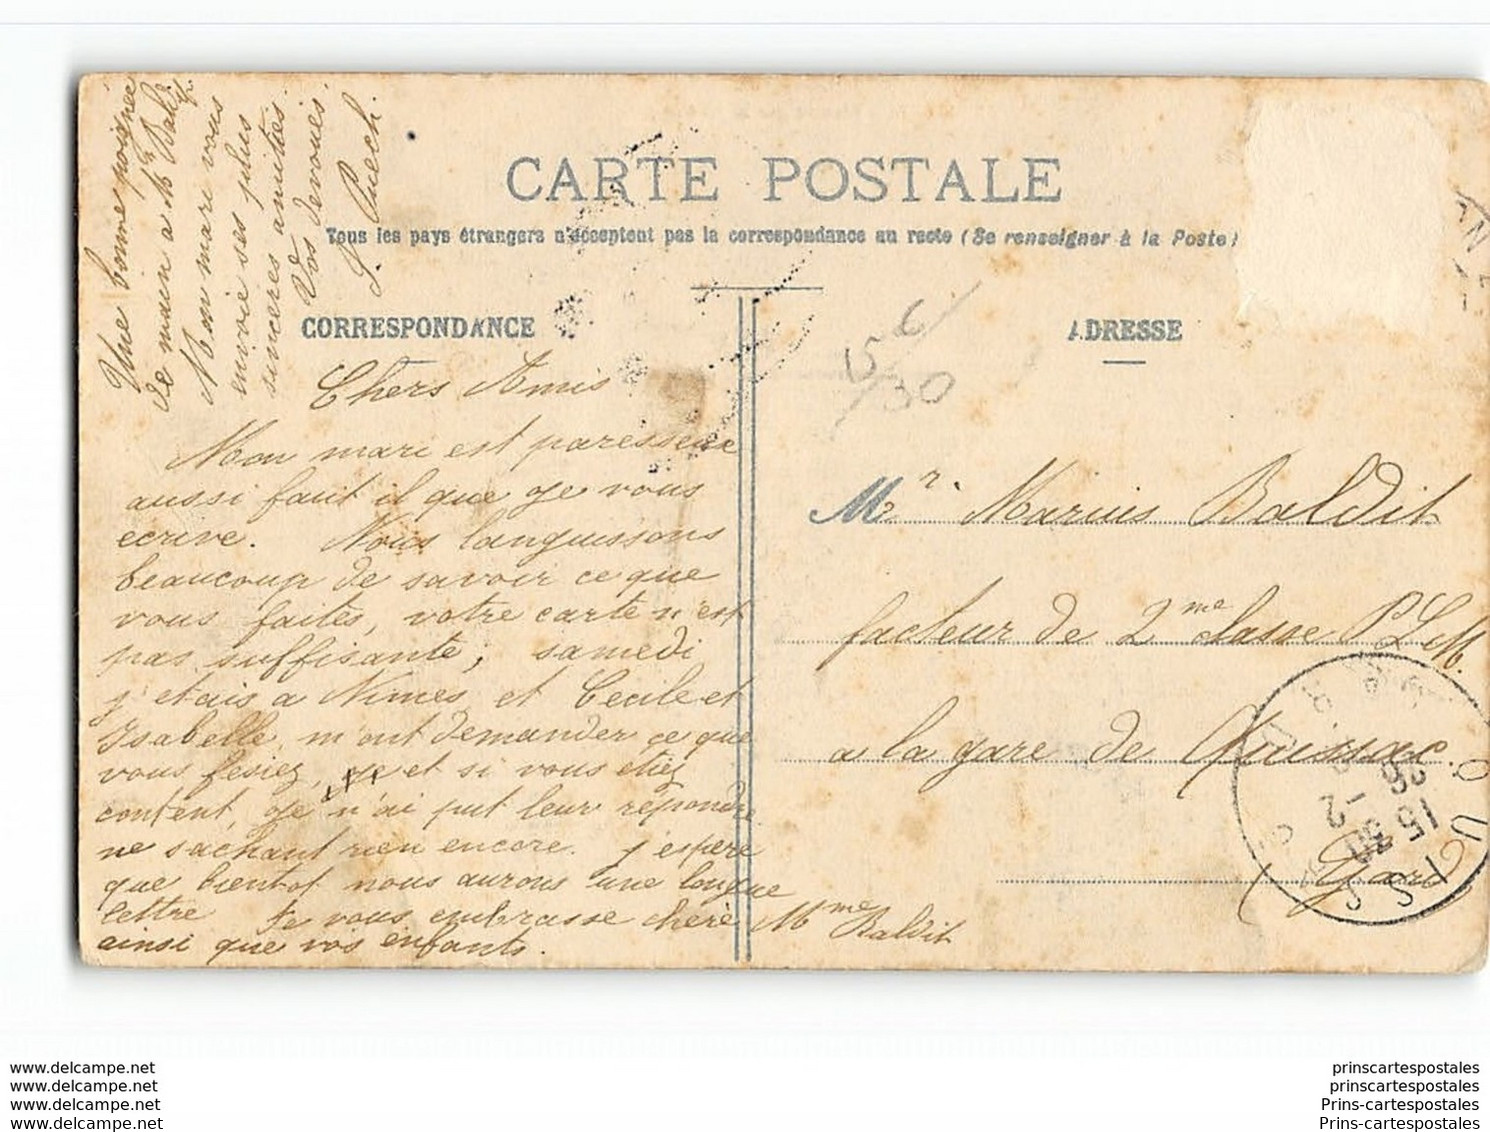 CARTE POSTALE
Tous les pays étrangers n'acceptent pas la correspondance au recto (Se renseigner à la Poste)
CORRESPONDANCE
ADRESSE
Chers Amis
Mon mari est paresseux
aussi faut il que je vous
ecrive. Nous languissons
beaucoup de savoir ce que
vous faites, votre carte n'est
pas suffisante, samedi
j'etais a Nimes et Cecile et
Isabelle m'ont demander ce que
vous fesiez, et si vous etiez
content, je n'ai put leur repondre
ne sachant rien encore. j'espere
que bientot nous aurons une longue
lettre Je vous embrasse chere Mme Baldit
ainsi que vos enfants.
Une bonne poignée
de main a Mr Baldit
Mon mari vous
envoie ses plus
sinceres amitiés
Vos devoués
L. Puech
5c/30
Mr. Marius Baldit
facteur de 2me classe P.L.M.
a la gare de Quissac
Gard
QUISS
15 30
26 -2
www.delcampe.net
www.delcampe.net
www.delcampe.net
www.delcampe.net
prinscartespostales
prinscartespostales
Prins-cartespostales
Prins-cartespostales